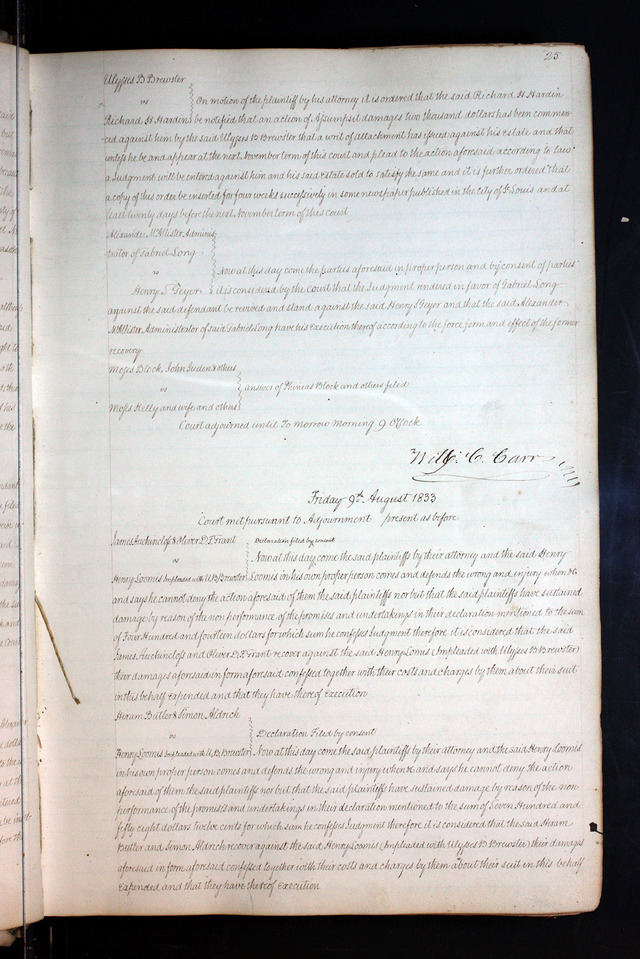 25
Ulysses B Brewster
vs
On motion of the plaintiff by his attorney it is ordered that the said Richard H Hardin
Richard H Hardin be notified that an action of Assumpsit damages two thousand dollars has been commen-
ced against him by the said Ulysses B Brewster that a writ of attachment has issued against his estate and that
unless he be and appear at the next November term of this court and plead to the action aforesaid according to law
a Judgment will be entered against him and his said estate sold to satisfy the same and it is further ordered that
a copy of this order be inserted for four weeks successively in some newspaper published in the city of St Louis and at
least twenty days before the next November term of this court
Alexander McAllister Adminis
trator of Gabriel Long
vs
Now at this day come the parties aforesaid in proper person and by consent of parties
Henry S Geyer it is considered by the Court that the Judgment rendered in favor of Gabriel Long
against the said defendant be revived and stand against the said Henry S Geyer and that the said Alexander
McAllister Administrator of said Gabriel Long have his Execution thereof according to the force form and effect of the former
recovery
Moses Block, John Juden & others
vs
answer of Phinias Block and others filed
Moses Kelly and wife and others
Court adjourned until To morrow morning 9 O'Clock
Will. C. Carr
Friday 9th August 1833
Court met pursuant to Adjournment present as before
James Auchincloss & Oliver D F Grant
Declaration filed by consent
vs
Now at this day come the said plaintiffs by their attorney and the said Henry
Henry Loomis Impleaded with U B Brewster Loomis in his own proper person comes and defends the wrong and injury when &c
and says he cannot deny the action aforesaid of them the said plaintiffs nor but that the said plaintiffs have sustained
damage by reason of the non performance of the promises and undertakings in their declaration mentioned to the sum
of Four Hundred and fourteen dollars for which sum he confesses Judgment therefore it is considered that the said
James Auchincloss and Oliver D F Grant recover against the said Henry Lomis (Impleaded with Ulysses B Brewster)
their damages aforesaid in form aforsaid confessed together with their costs and charges by them about their suit
in this behalf Expended and that they have thereof Execution
Hiram Butler & Simon Aldrich
vs
Declaration Filed by consent
Henry Loomis Impleaded with U. B. Brewster Now at this day come the said plaintiffs by their attorney and the said Henry Loomis
in his own proper person comes and defends the wrong and injury when &c and says he cannot deny the action
aforesaid of them the said plaintiffs nor but that the said plaintiffs have sustained damage by reason of the non
performance of the promises and undertakings in their declaration mentioned to the sum of Seven Hundred and
fifty eight dollars twelve cents for which sum he confesses Judgment therefore it is considered that the said Hiram
Butler and Simon Aldrich recover against the said Henry Loomis (Impleaded with Ulysses B Brewster) their damages
aforesaid in form aforesaid confessed together with their costs and charges by them about their suit in this behalf
Expended and that they have thereof Execution